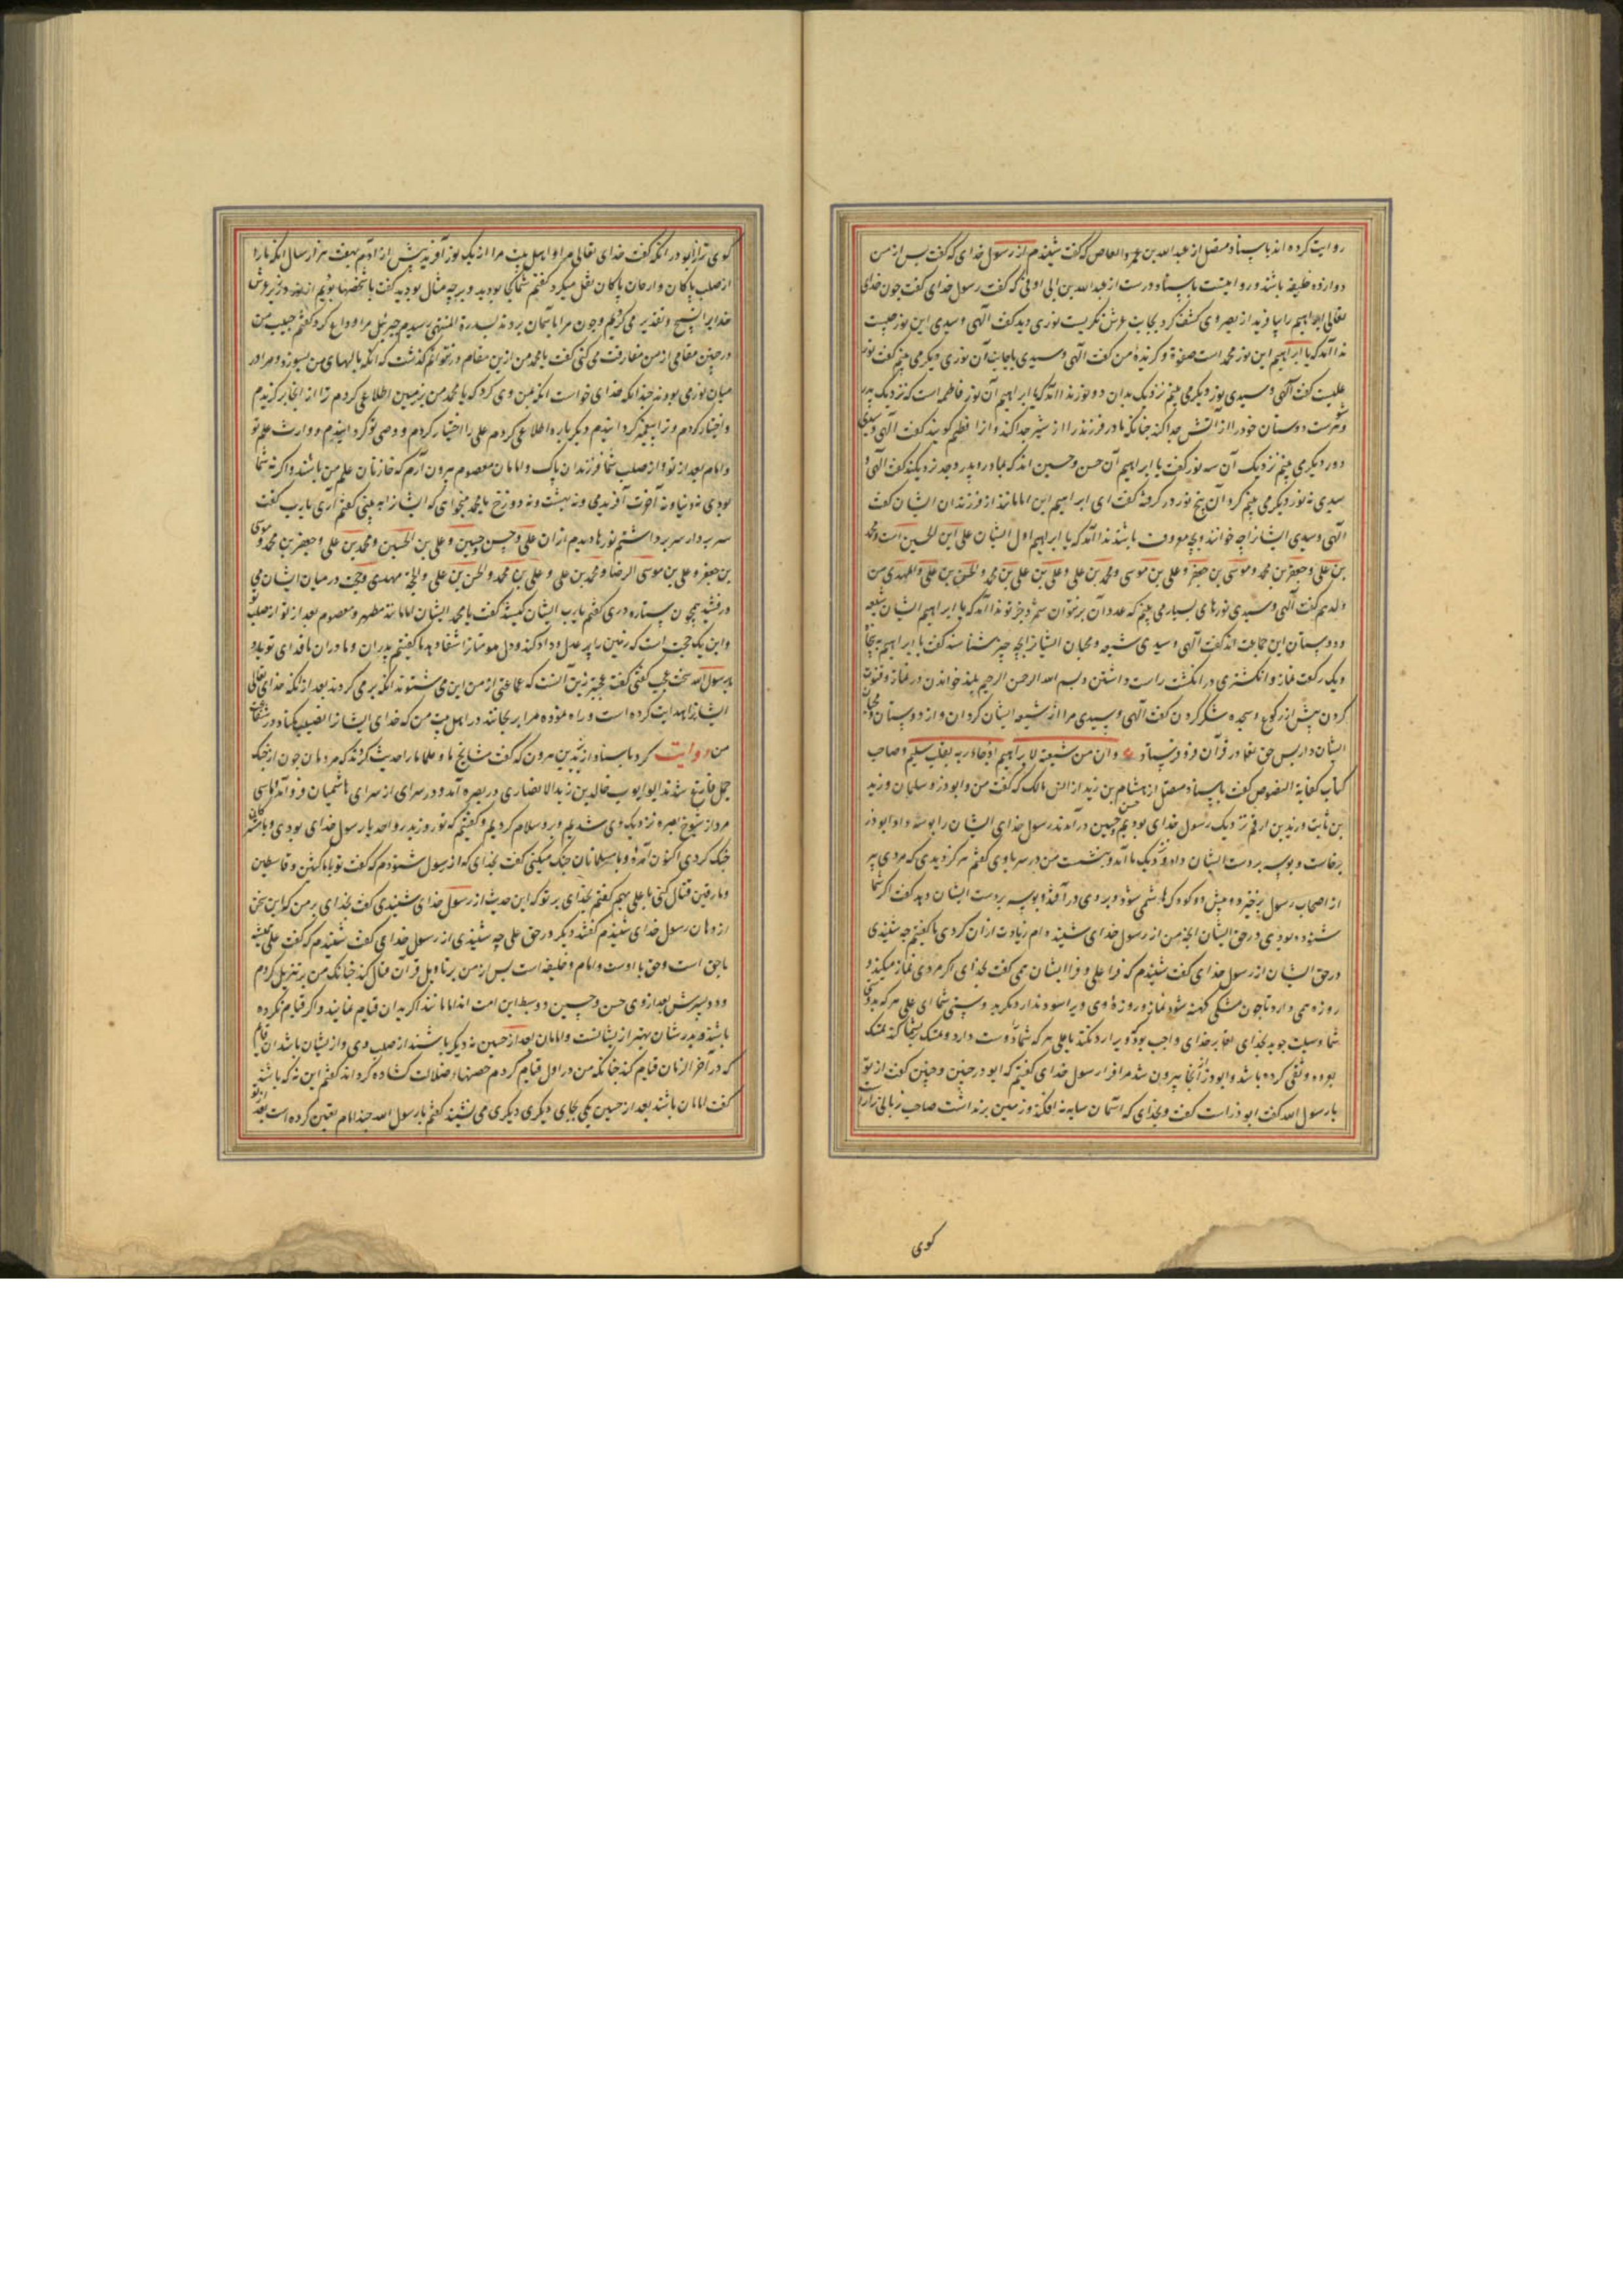 روایت کرده اند باسناد متصل از عبد الله بن عمرو العاص که گفت شنیدم از رسول خدای که گفت پس از من
دوازده خلیفه باشند و روایتست باسناد درست از عبد الله بن ابی اوفی که گفت رسول خدای گفت چون خدای
تعالی ابراهیم را بیافرید از بصر وی کشف کرد بجانب عرش نگریست نوری دید گفت الهی و سیدی این نور چیست
ندا آمد که یا ابراهیم این نور محمد است صفوة و گزیدهٔ من گفت الهی و سیدی بجانب آن نوری دیگر می بینم گفت نور
علیست گفت الهی و سیدی نوری دیگر می بینم نزدیک بدان دو نور ندا آمد که یا ابراهیم آن نور فاطمه است که نزدیک پدر
و شوهرست دوستان خود را از آتش جدا کند چنانکه مادر فرزند را از شیر جدا کند و از افطم گویند گفت الهی و سیدی
دو نور دیگر می بینم نزدیک آن سه نور گفت یا ابراهیم آن حسن و حسین اند که بمادر و پدر و جد نزدیکند گفت الهی و
سیدی نه نور دیگر می بینم گرد آن پنج نور در گرفته گفت ای ابراهیم این امامانند از فرزندان ایشان گفت
الهی و سیدی ایشانرا چه خوانند و بچه معروف باشند ندا آمد که یا ابراهیم اول ایشان علی ابن الحسین است و محمد
بن علی و جعفر بن محمد و موسی بن جعفر و علی بن موسی و محمد بن علی و علی بن محمد و الحسن بن علی و المهدی من
ولدهم گفت الهی و سیدی نورهای بسیار می بینم که عدد آن بر نتوان شمرد جز تو ندا آمد که یا ابراهیم ایشان شیعه
و دوستان این جماعت اند گفت الهی و سیدی شیعه و محبان ایشانرا بچه چیز شناسند گفت یا ابراهیم به پنجاه
و یک رکعت نماز و انگشتری در انگشت راست داشتن و بسم الله الرحمن الرحیم بلند خواندن در نماز و قنوت
کردن پیش از رکوع و سجده شکر کردن گفت الهی و سیدی مرا از شیعه ایشان گردان و از دوستان و محبان
ایشان دار پس حق تعا در قرآن فرو فرستاد وان من شیعته لابراهیم اذ جاء ربه بقلب سلیم و صاحب
کتاب کفایة النصوص گفت باسناد متصل از هشام بن زید از انس مالک که گفت من و ابوذر و سلمان و زید
بن ثابت و زید بن ارقم نزدیک رسول خدای بودیم حسن و حسین در آمدند رسول خدای ایشان را بوسه داد ابوذر
برخاست و بوسه بر دست ایشان داد و نزدیک ما آمد و بنشست من در سر با وی گفتم هرگز دیدی که مردی پیر
از اصحاب رسول برخیزد و پیش دو کودک هاشمی شود و بر وی در افتد و بوسه بر دست ایشان دهد گفت اگر شما
شنوده بودی در حق ایشان آنچه من از رسول خدای شنیده ام زیادت از آن کردی ما گفتیم چه شنیدی
در حق ایشان از رسول خدای گفت شنیدم که فرا علی و فرا ایشان می گفت بخدای اگر مردی نماز میکند و
روزه می دارد تا چون مشکی کهنه شود نماز و روزهٔ وی ویرا سود ندارد مگر به دوستی شما ای علی هر که بدوستی
شما وسیلت جوید بخدای تعا بر خدای واجب بود که ویرا رد نکند یا علی هر که شما را دوست دارد و تمسک بشما کند تمسک
بعروه وثقی کرده باشد و ابوذر از آنجا بیرون شد ما فرا رسول خدای گفتیم که ابوذر چنین و چنین گفت از تو
یا رسول الله گفت ابوذر راست گفت و بخدای که آسمان سایه نه افکند و زمین بر نداشت صاحب زبانی را
کوی
گوی تر از ابوذر انگه گفت خدای تعالی مرا و اهل بیت مرا از یک نور آفرید پیش از آدم بهفت هزار سال انگه ما را
از صلب پاکان و ارحام پاکان نقل میکرد گفتم شما کجا بودید و بر چه مثال بودید گفت ما شخصها بودیم از نور در زیر عرش
خدایرا تسبیح و تقدیس می کردیم و چون مرا بآسمان بردند بسدرة المنتهی رسیدم جبرئیل مرا وداع کرد گفتم حبیب من
در چنین مقامی از من مفارقت می کنی گفت یا محمد من ازین مقام در نتوانم گذشت که انگه بالهای من بسوزد و مرا در
میان نوری بودند چندانکه خدای خواست انگه بمن وحی کرد که یا محمد من بزمین اطلاعی کردم ترا از آنجا بر گزیدم
و اختیار کردم و ترا پیغمبر گردانیدم دیگر باره اطلاعی کردم علی را اختیار کردم و وصی تو گردانیدم و وارث علم تو
و امام بعد از تو و از صلب شما فرزندان پاک و امامان معصوم بیرون آرم که خازنان علم من باشند و اگر نه شما
بودی نه دنیا و نه آخرت آفریدمی و نه بهشت و نه دوزخ یا محمد میخواهی که ایشانرا ببینی گفتم آری یا رب گفت
سر بردار سر برداشتم نورها دیدم از آن علی و حسن و حسین و علی بن الحسین و محمد بن علی و جعفر بن محمد و موسی
بن جعفر و علی بن موسی الرضا و محمد بن علی و علی بن محمد و الحسن بن علی و الحجة مهدی و حجت در میان ایشان می
درفشید همچون ستاره دری گفتم یا رب ایشان کیستند گفت یا محمد ایشان امامانند مطهر و معصوم بعد از تو از صلب تو
و این یک حجت است که زمین را پر عدل و داد کند و دل مومنانرا شفا دهد ما گفتیم پدران و مادران ما فدای تو باد
یا رسول الله سخت عجب گفتی گفت عجبتر ازین آنست که جماعتی از من این می شنوند انگه بر می گردند بعد از آنکه خدای تعالی
ایشانرا هدایت کرده است و راه نموده مرا برنجانند در اهل بیت من که خدای ایشانرا نصیب مکناد در شفاعت
من روایت کرد باسناد از یزید بن هرون که گفت مشایخ ما و علما ما را حدیث کردند که مردمان چون از جنگ
جمل فارغ شدند ابو ایوب خالد بن زید الانصاری در بصره آمد و در سرای از سرای هاشمیان فرو آمد سی
مرد از شیوخ بصره نزدیک وی شدیم و بر وی سلام کردیم و گفتیم که تو روز بدر و احد با رسول خدای بودی و با مشرکان
جنگ کردی اکنون آمدهٔ و با مسلمانان جنگ میکنی گفت بخدای که از رسول شنودم که گفت تو با ناکثین و قاسطین
و مارقین قتال کنی با علی بهم گفتم بخدای بر تو که این حدیث از رسول خدای شنیدی گفت بخدای بر من که این سخن
از دهان رسول خدای شنیدم گفتند دیگر در حق علی چه شنیدی از رسول خدای گفت شنیدم که گفت علی همیشه
با حق است و حق با اوست و امام و خلیفه است پس از من بر تاویل قرآن قتال کند چنانک من بر تنزیل کردم
و دو پسرش بعد از وی حسن و حسین دو سبط این امت اند امامانند اگر بدان قیام نمایند و اگر قیام نکرده
باشند و پدرشان بهتر از ایشانست و امامان بعد از حسین نه دیگر باشند از صلب وی و از ایشان باشد آن قائم
که در آخر الزمان قیام کند چنانکه من در اول قیام کردم حصنهاء ضلالت گشاده گرداند گفتم این نه که باشند
گفت امامان باشند بعد از حسین یکی بجای دیگری دیگری می نشیند گفتم یا رسول الله چند امام تعین کرده است بعد از تو